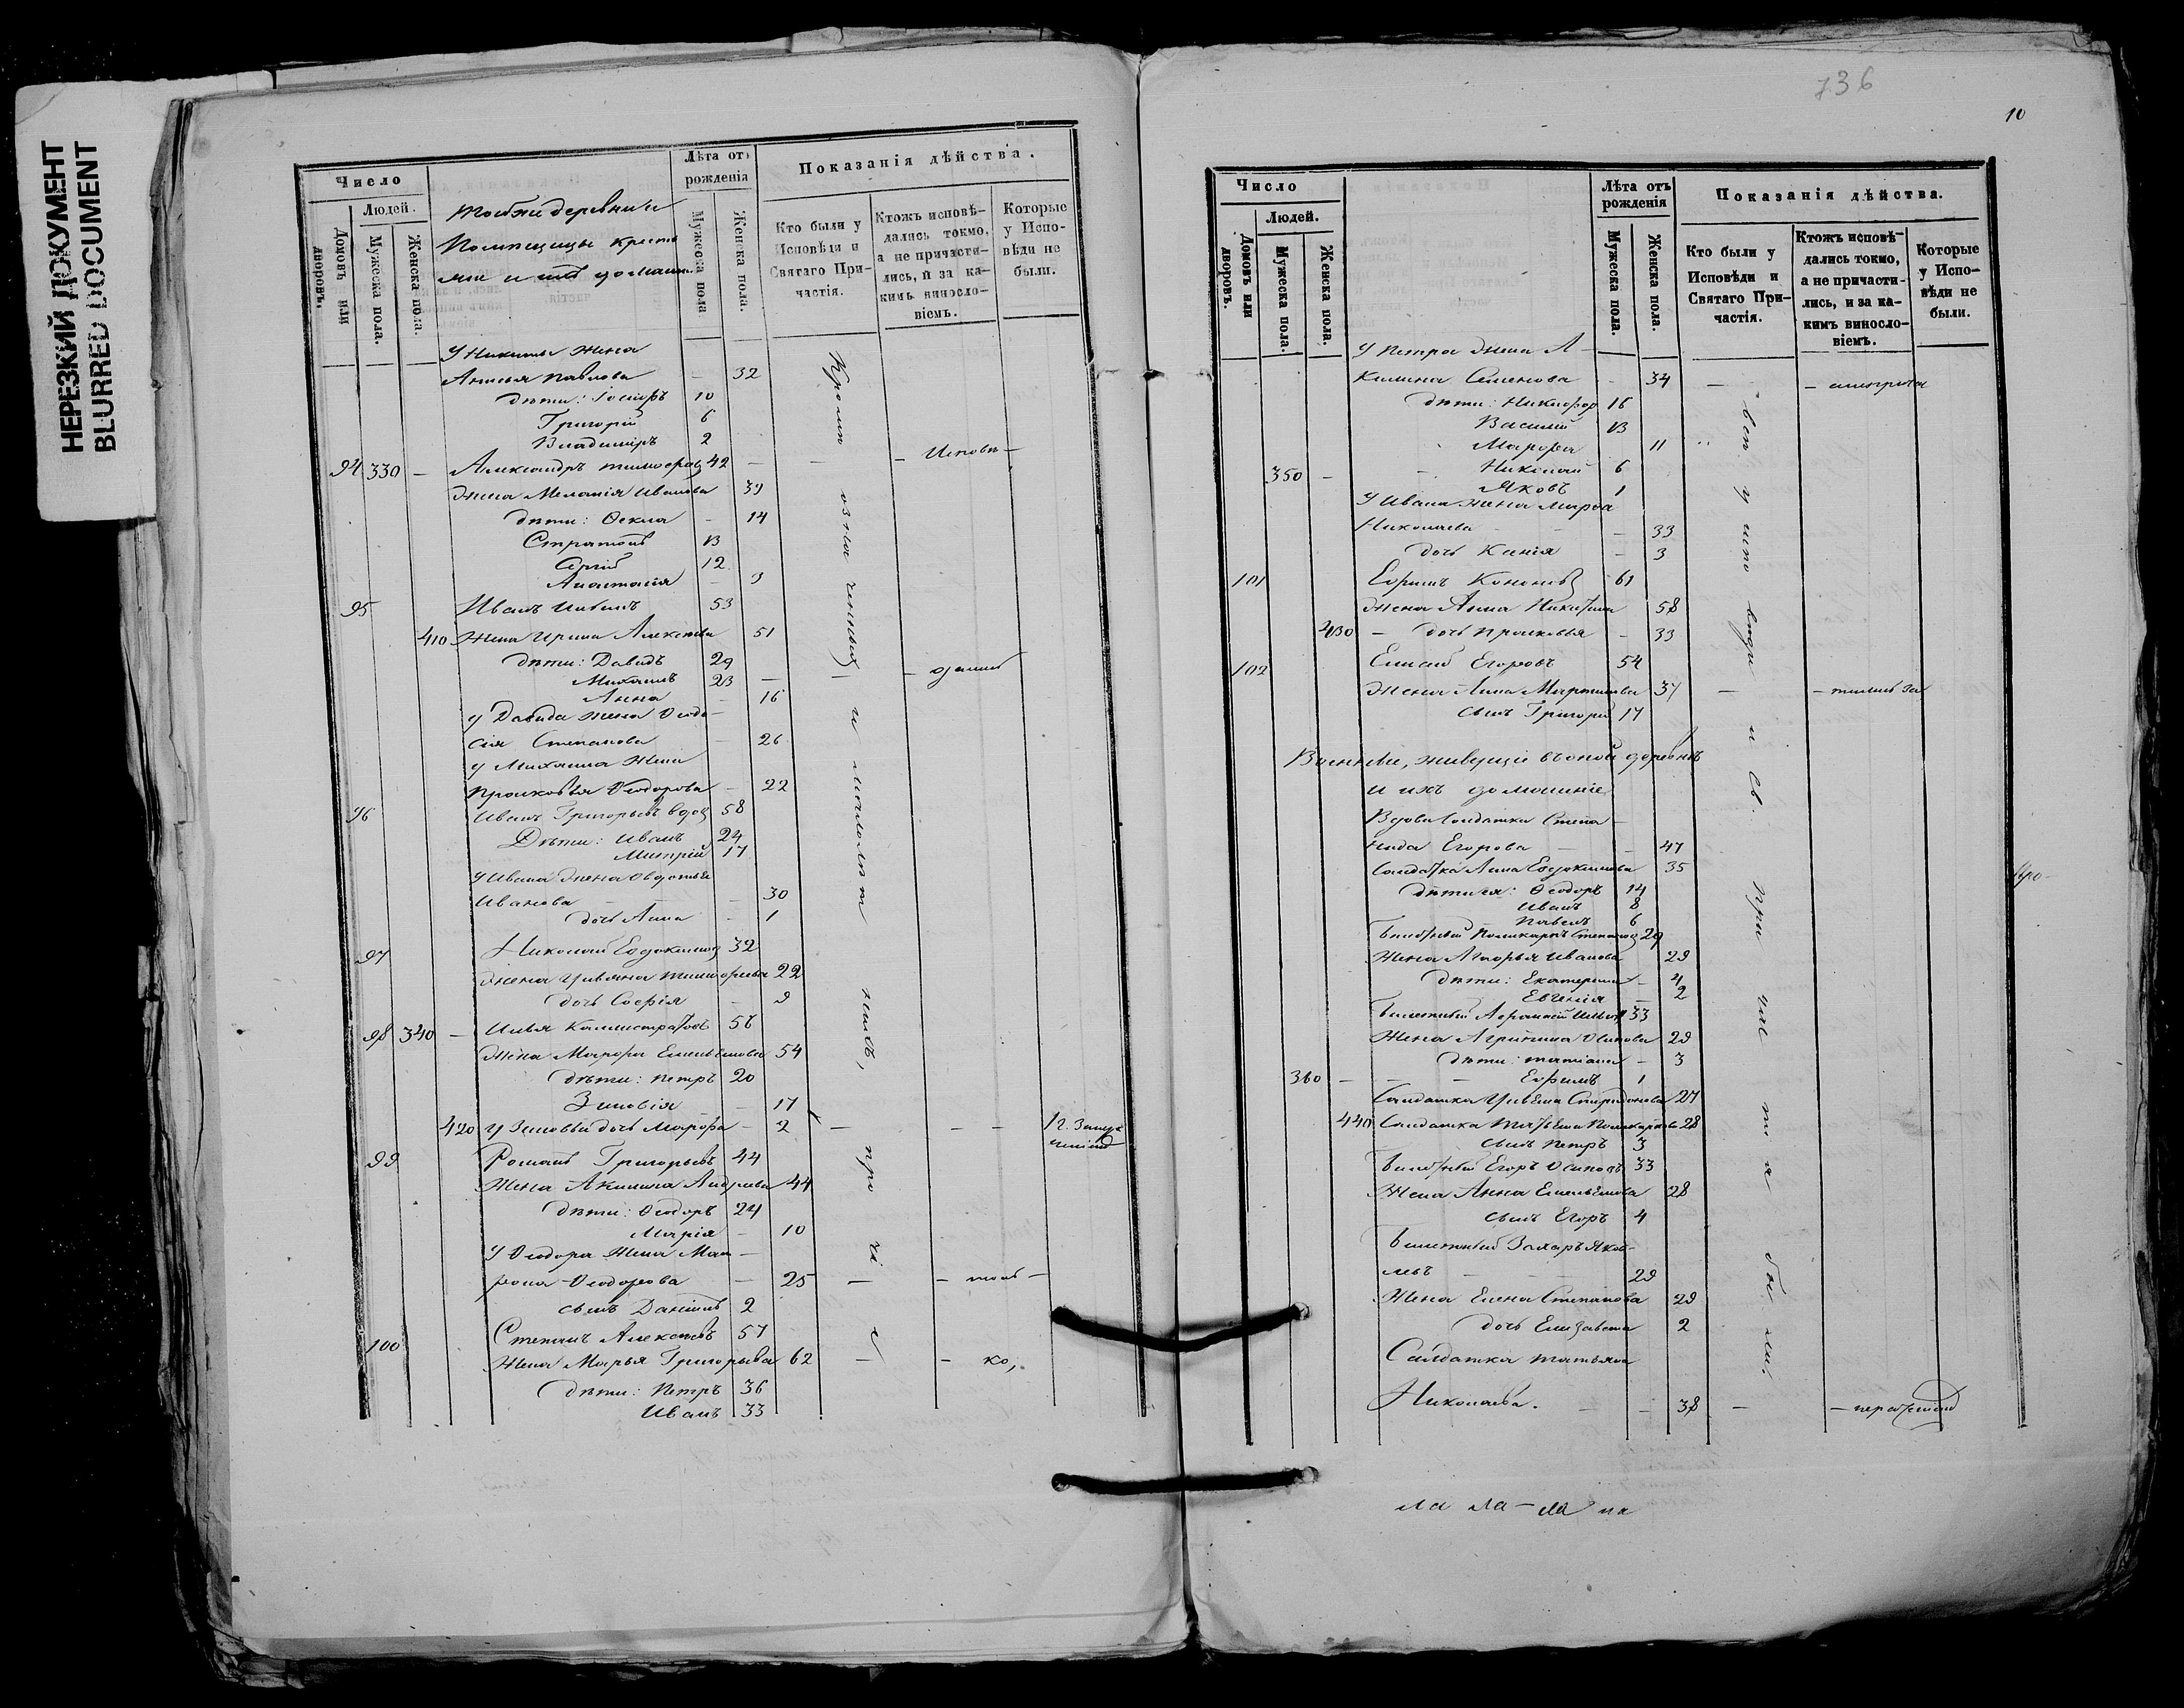 НЕРЕЗКИЙ ДОКУМЕНТ
BLURRED DOCUMENT
Число
Людей.
Домовъ или дворовъ.
Мужеска пола.
Женска пола.
Тойже деревни
Помѣщицы кресть
яне и ихъ домашн.
Лѣта отъ рожденія
Мужеска пола
Женска пола.
Показанія дѣйства.
Кто были у Исповѣди и Святаго Причастія.
Ктожъ исповѣдались токмо, а не причастились, и за какимъ винословіемъ.
Которые у Исповѣди не были.
У Никиты жена
Анисья Павлова - 32
дѣти: 10
Григорій 6
Владиміръ 2
94 330 - Александръ 42 - - - Исповѣ-
жена Меланія Иванова 39
дѣти: Ѳекла - 14
Стратонъ 13
Сергій 12
Анастасія - 9
95 Иванъ 53
410 Жена Ирина Алексѣева 51
дѣти: Давидъ 29
Михаилъ 23 - - - дались
Анна - 16
у Давида жена Ѳеодо-
сія Степанова - 26
у Михаила жена
Прасковья Ѳеодорова - 22
96 Иванъ Григорьевъ вдов 58
Дѣти: Иванъ 24
Митрій 17
У Ивана жена Овдотья
Иванова - - 30
дочь Анна - 1
97 Николай Евдокимов 32
жена Ульяна 22
дочь Софія - 9
98 340 - Илья Каллистратовъ 56
жена Марфа Емельянова 54
дѣти: Петръ 20
Зиновія - 17
420 У Зиновьи дочь Марфа - 2 - - -
99 Романъ Григорьевъ 44
Жена Акилина Андреева 44
дѣти: Ѳеодоръ 24
Марія - 10
У Ѳеодора жена Мат-
рона Ѳеодорова - 25 - - толь-
сынъ Даніилъ 2
100 Степанъ Алексѣевъ 57
Жена Марья Григорьева 62 - - ко,
дѣти: Петръ 36
Иванъ 33
Кромѣ
и
прочіи
736
10
Число
Людей.
Домовъ или дворовъ.
Мужеска пола.
Женска пола.
Лѣта отъ рожденія
Мужеска пола.
Женска пола.
Показанія дѣйства.
Кто были у Исповѣди и Святаго Причастія.
Ктожъ исповѣдались токмо, а не причастились, и за какимъ винословіемъ.
Которые у Исповѣди не были.
У Петра жена А-
килина Семенова - 34 - - анеприча
дѣти: Никифор 16
Василій 13
Марфа 11
350 - - Николай 6
Яковъ 1
У Ивана жена Марѳа
Николаева - - 33
дочь Ксенія - 3
101 Ефимъ Кононовъ 61
жена Анна Никитина 58
430 - дочь Прасковья - 33
102 Елисей Егоровъ 54
жена Анна Мартынова 37 - - тились за
сынъ Григорій 17
Военные, живущіе въ оной деревнѣ
и ихъ домашніе
Вдова Солдатка Степа-
нида Егорова - - 47
Солдатка Анна Евдокимова 35
дѣти ея: Ѳеодоръ 14
Иванъ 8
Павелъ 6
Билетный Поликарпъ Степанов 29
Жена Агафья Иванова 29
дѣти: Екатерина - 4
Евгенія - 2
Билетный Афанасій Ильин 33
Жена Агрипина Осипова 29
дѣти: Татіана - 3
360 - - - Ефимъ 1
Солдатка Ульяна Спиридонова 27
440 Солдатка Татьяна Поликарпова 28
сынъ Петръ 3
Билетный Егоръ Осиповъ 33
Жена Анна Емельянова 28
сынъ Егоръ 4
Билетный Захаръ Яков-
левъ 29
Жена Елена Степанова 29
дочь Елизавета 2
Солдатка Татьяна
Николаева. - - 38 -
всѣ у исповѣди и св. причастія были.
ла ла-ла